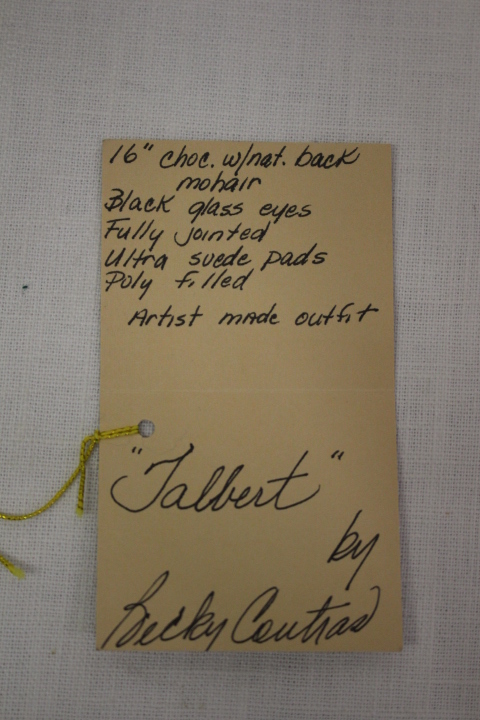 16" choc. w/nat. back
mohair
Black glass eyes
Fully jointed
Ultra suede pads
Poly filled
Artist made outfit
"Talbert"
by
Becky